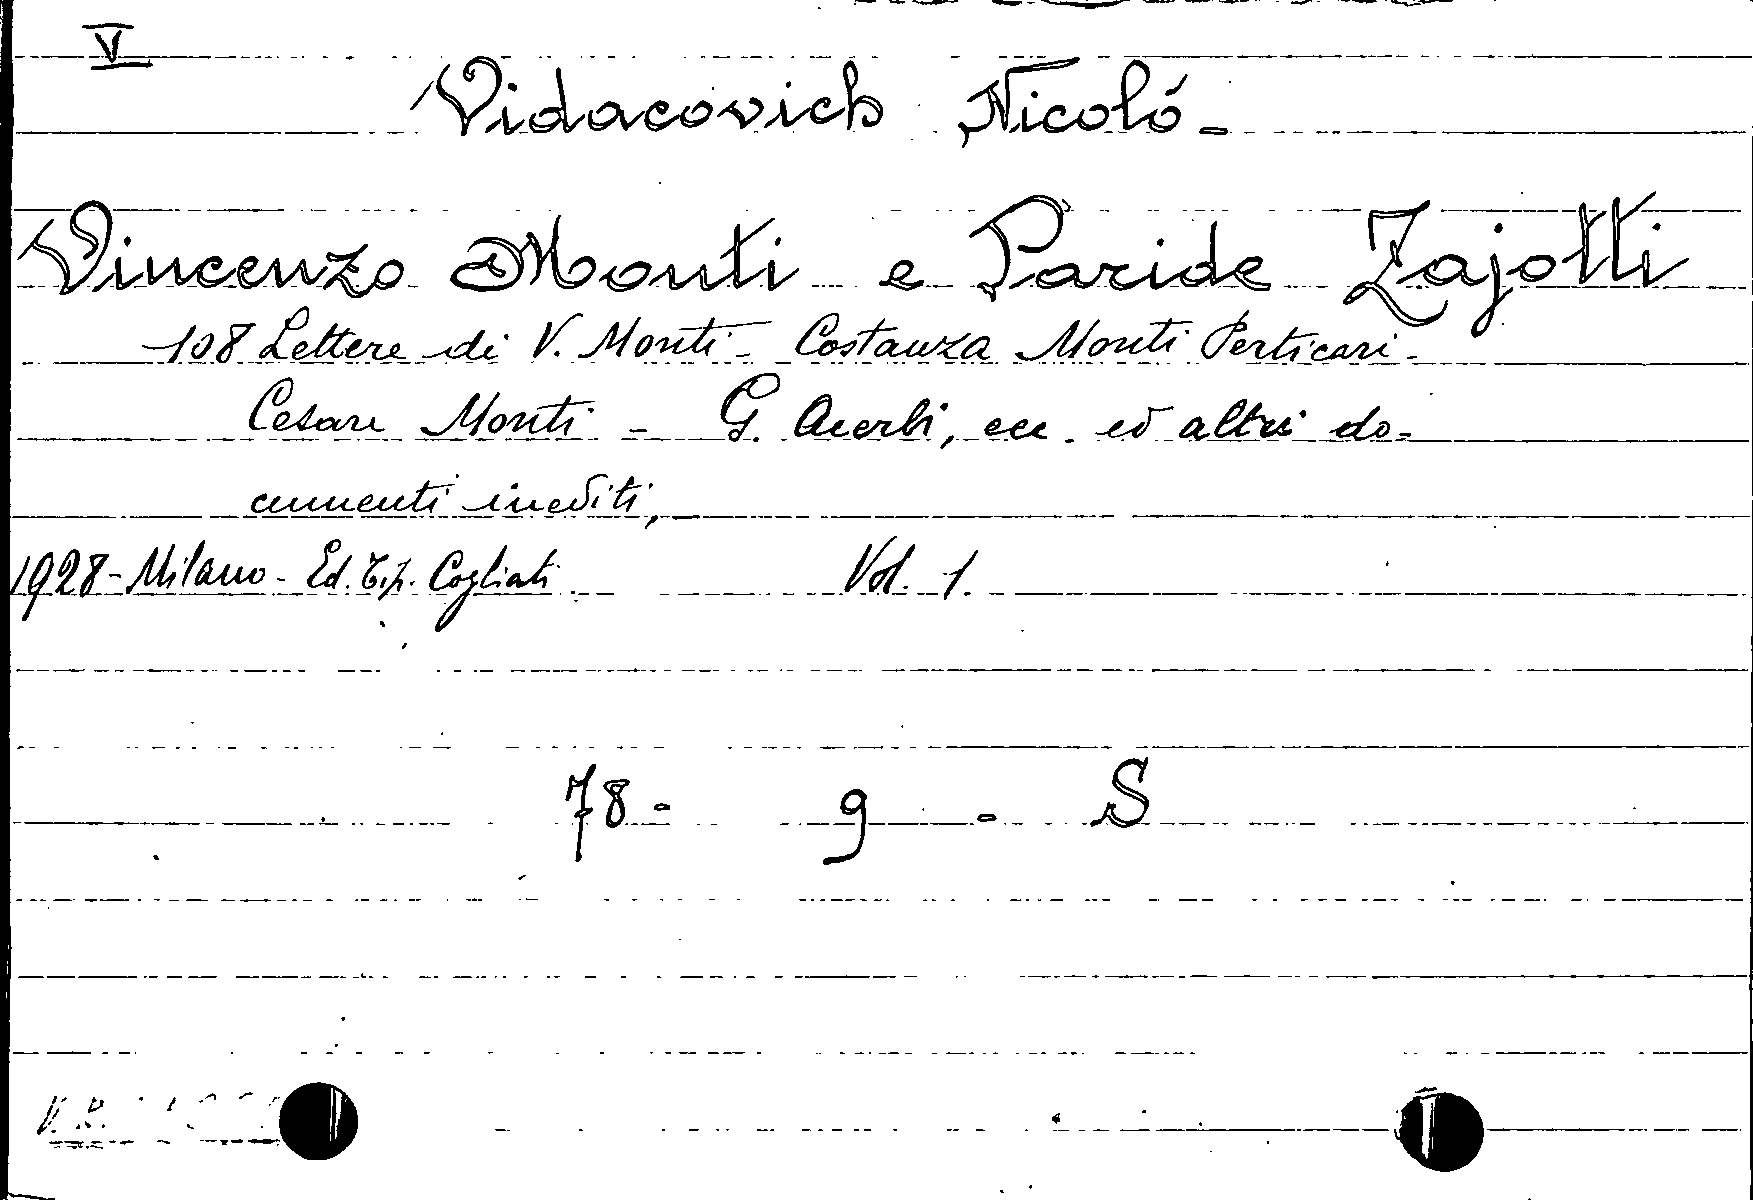 V
Vidacovich Nicoló -
Vincenzo Monti e Paride Zajotti
108 Lettere di V. Monti - Costanza Monti Perticari -
Cesare Monti - G. Acerbi, ecc. ed altri do-
cumenti inediti,
1928 - Milano - Ed. Tip. Cogliati Vol. 1.
78 - 9 - S